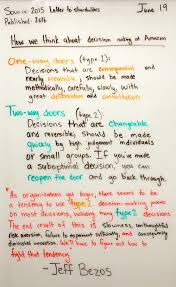 Source: 2015 Letter to shareholders
June 19
Published: 2016
How we think about decision making at Amazon
One-way doors (type 1):
Decisions that are consequential and
nearly irreversible, should be made
methodically, carefully, slowly, with
great deliberation and consultation
Two-way doors (type 2):
Decisions that are changeable
and reversible, should be made
quickly by high judgement individuals
or small groups. If you've made
a suboptimal decision, you can
reopen the door and go back through.
"As organizations get larger, there seems to be
a tendency to use type 1 decision-making process
on most decisions, including many type 2 decisions.
The end result of this is slowness, unthoughtful
risk aversion, failure to experiment sufficiently, and consequently
diminished invention. We'll have to figure out how to
fight that tendency."
-Jeff Bezos